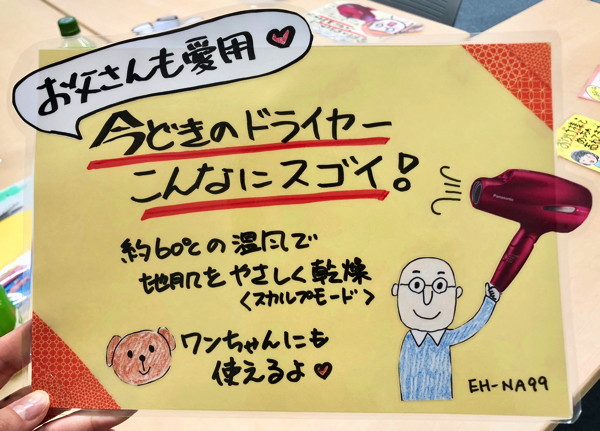 お父さんも愛用♥
今どきのドライヤー
こんなにスゴイ!
約60℃の温風で
地肌をやさしく乾燥
<スカルプモード>
ワンちゃんにも
使えるよ♥
Panasonic
EH-NA99